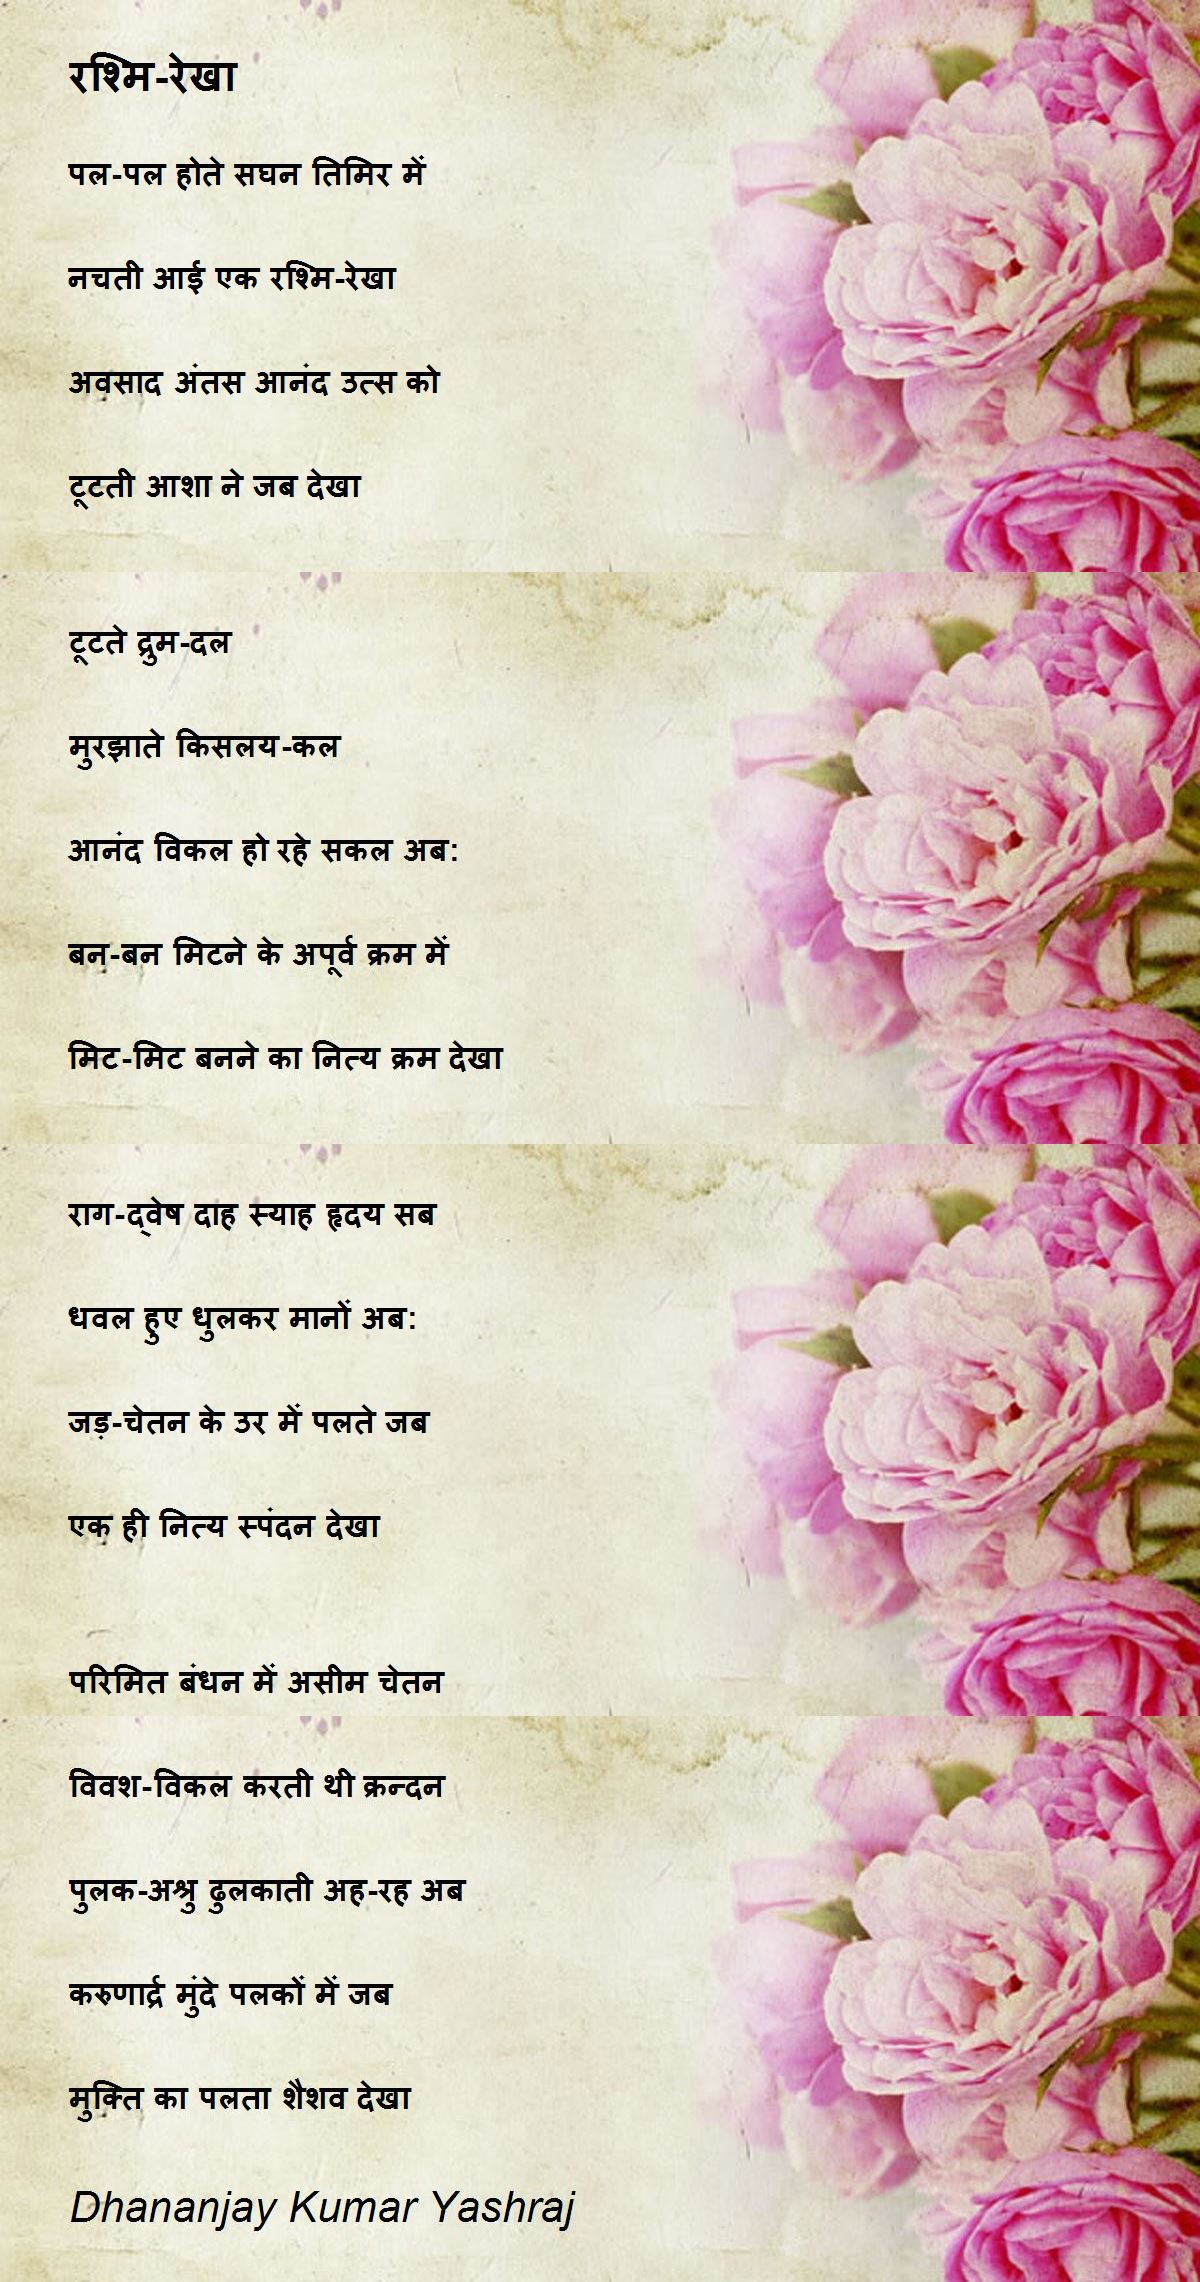 रश्मि-रेखा
पल-पल होते सघन तिमिर में
नचती आई एक रश्मि-रेखा
अवसाद अंतस आनंद उत्स को
टूटती आशा ने जब देखा
टूटते द्रुम-दल
मुरझाते किसलय-कल
आनंद विकल हो रहे सकल अब:
बन-बन मिटने के अपूर्व क्रम में
मिट-मिट बनने का नित्य क्रम देखा
राग-द्वेष दाह स्याह हृदय सब
धवल हुए धुलकर मानों अब:
जड़-चेतन के उर में पलते जब
एक ही नित्य स्पंदन देखा
परिमित बंधन में असीम चेतन
विवश-विकल करती थी क्रन्दन
पुलक-अश्रु ढुलकाती अह-रह अब
करुणार्द्र मुंदे पलकों में जब
मुक्ति का पलता शैशव देखा
Dhananjay Kumar Yashraj